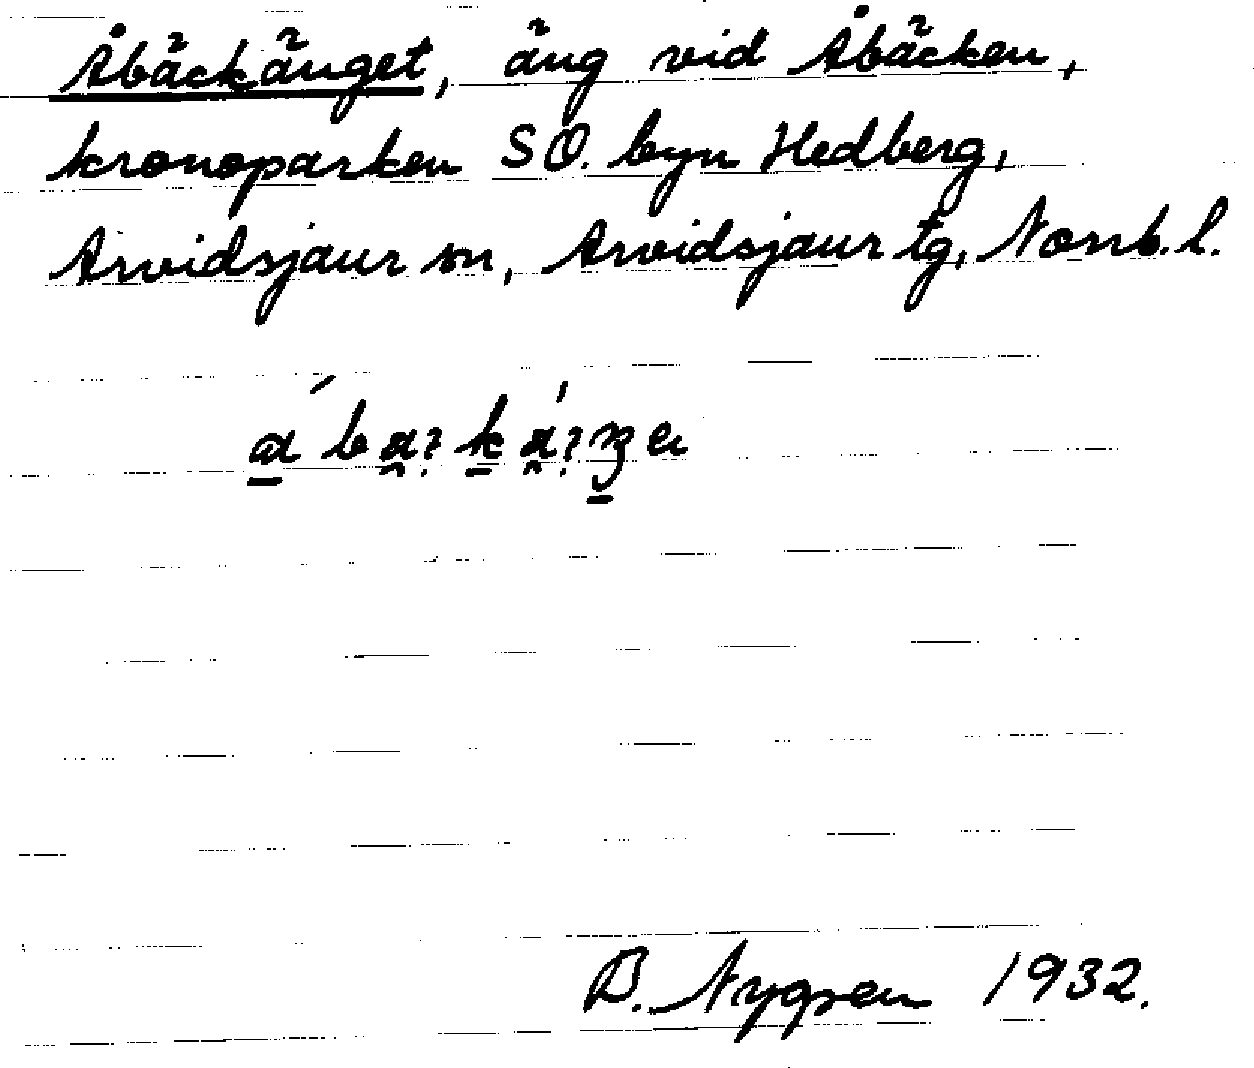 Åbäckänget, äng vid Åbäcken,
kronoparken SO. byn Hedberg,
Arvidsjaur sn, Arvidsjaur tg, Norrb. l.
B. Nygren 1932.